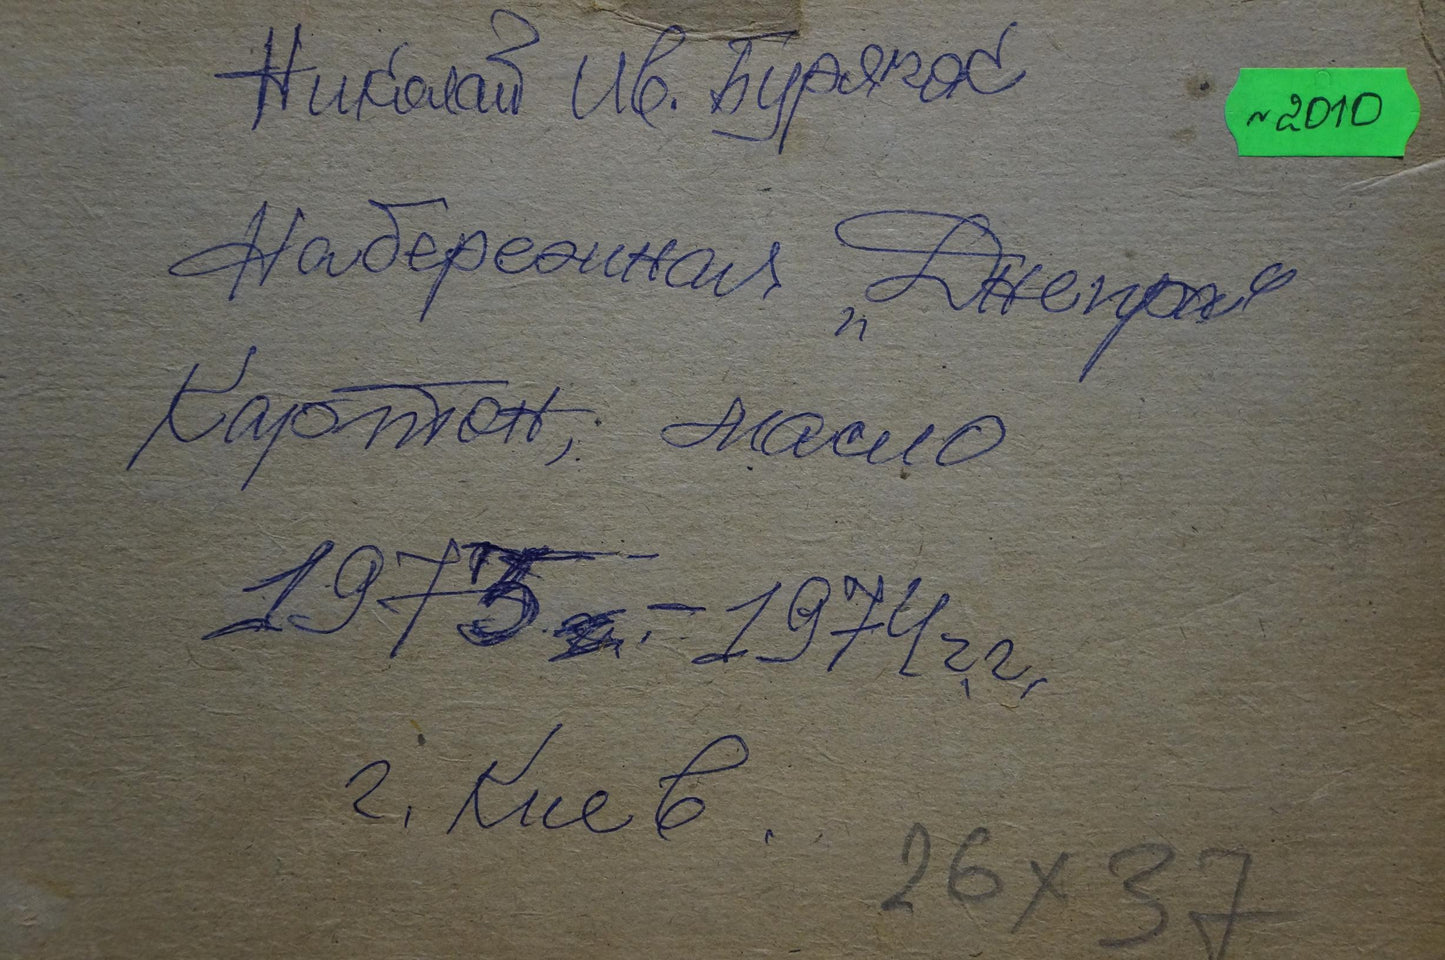 Николай Ив. Бурячок
№2010
Набережная „Днепра"
Картон, масло
1973 - 1974 г.г.
г. Киев.
26 x 37